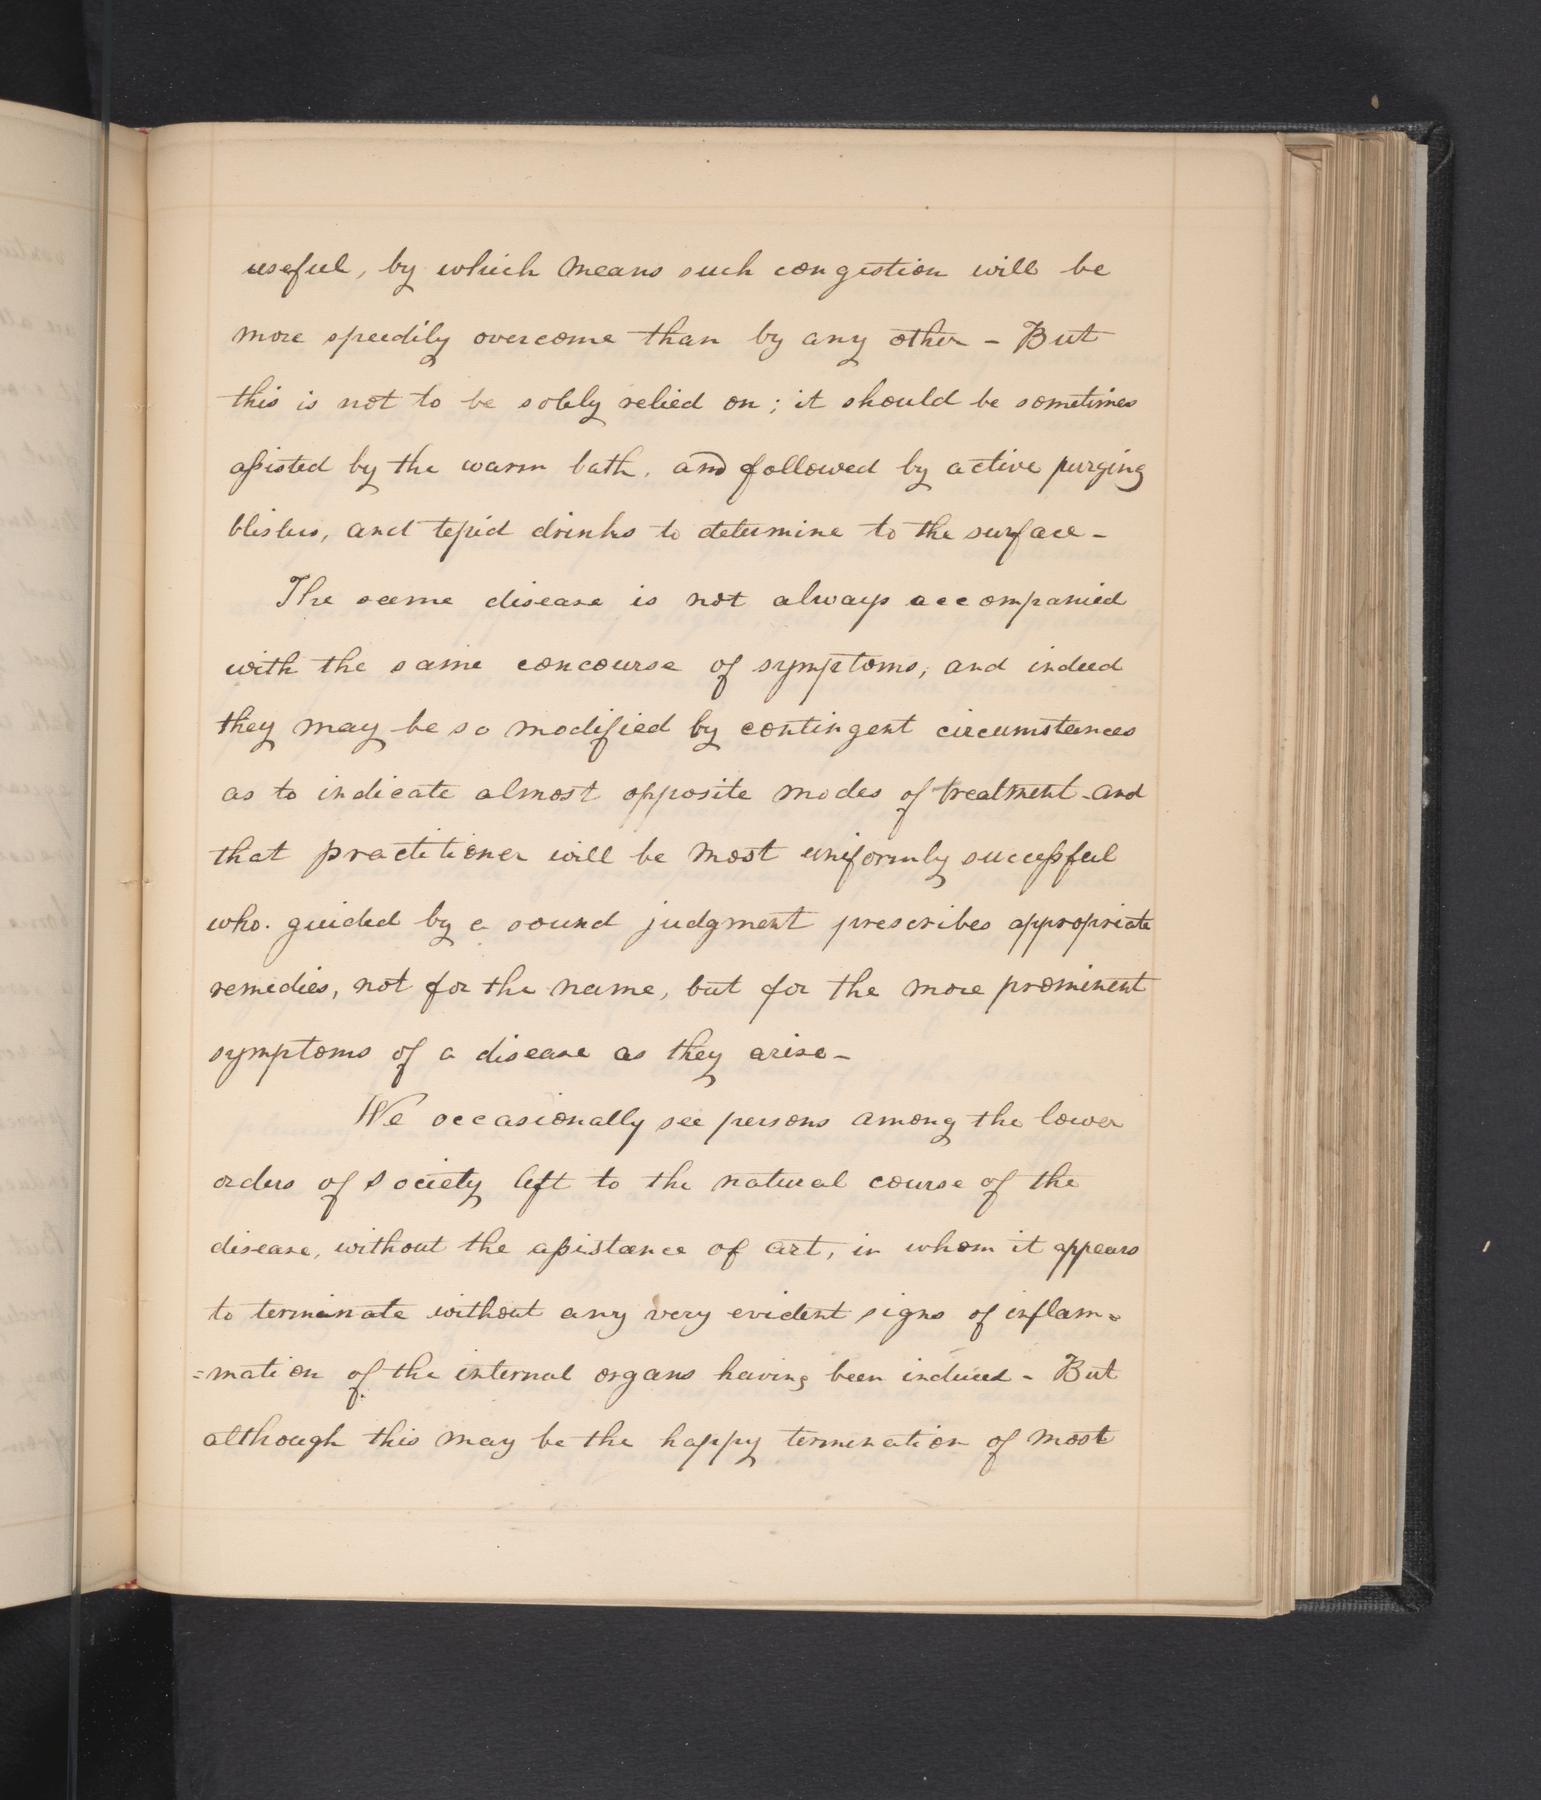 useful, by which means such congestion will be
more speedily overcome than by any other - But
this is not to be solely relied on; it should be sometimes
assisted by the warm bath. and followed by active purging
blisters, and tepid drinks to determine to the surface -
The same disease is not always accompanied
with the same concourse of symptoms, and indeed
they may be so modified by contingent circumstances
as to indicate almost opposite modes of treatment - and
that practitioner will be most uniformly successful
who. guided by a sound judgment prescribes appropriate
remedies, not for the name, but for the more prominent
symptoms of a disease as they arise -
We occasionally see persons among the lower
orders of society left to the natural course of the
disease, without the assistance of art, in whom it appears
to terminate without any very evident signs of inflam=
=mation of the internal organs having been induced - But
although this may be the happy termination of most